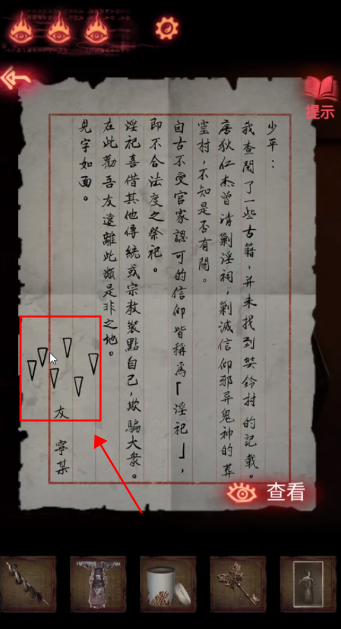 提示
少平：
我查閱了一些古籍，并未找到奘鈴村的記載。
唐狄仁杰曾清剿淫祠，剿滅信仰邪异鬼神的葬
鈴村，不知是否有關。
自古不受官家認可的信仰皆稱爲「淫祀」，
即不合法度之祭祀。
淫祀喜借其他傳統或宗教裝點自己，欺騙大衆。
在此勸吾友遠離此類是非之地。
見字如面。
友 寧某
查看